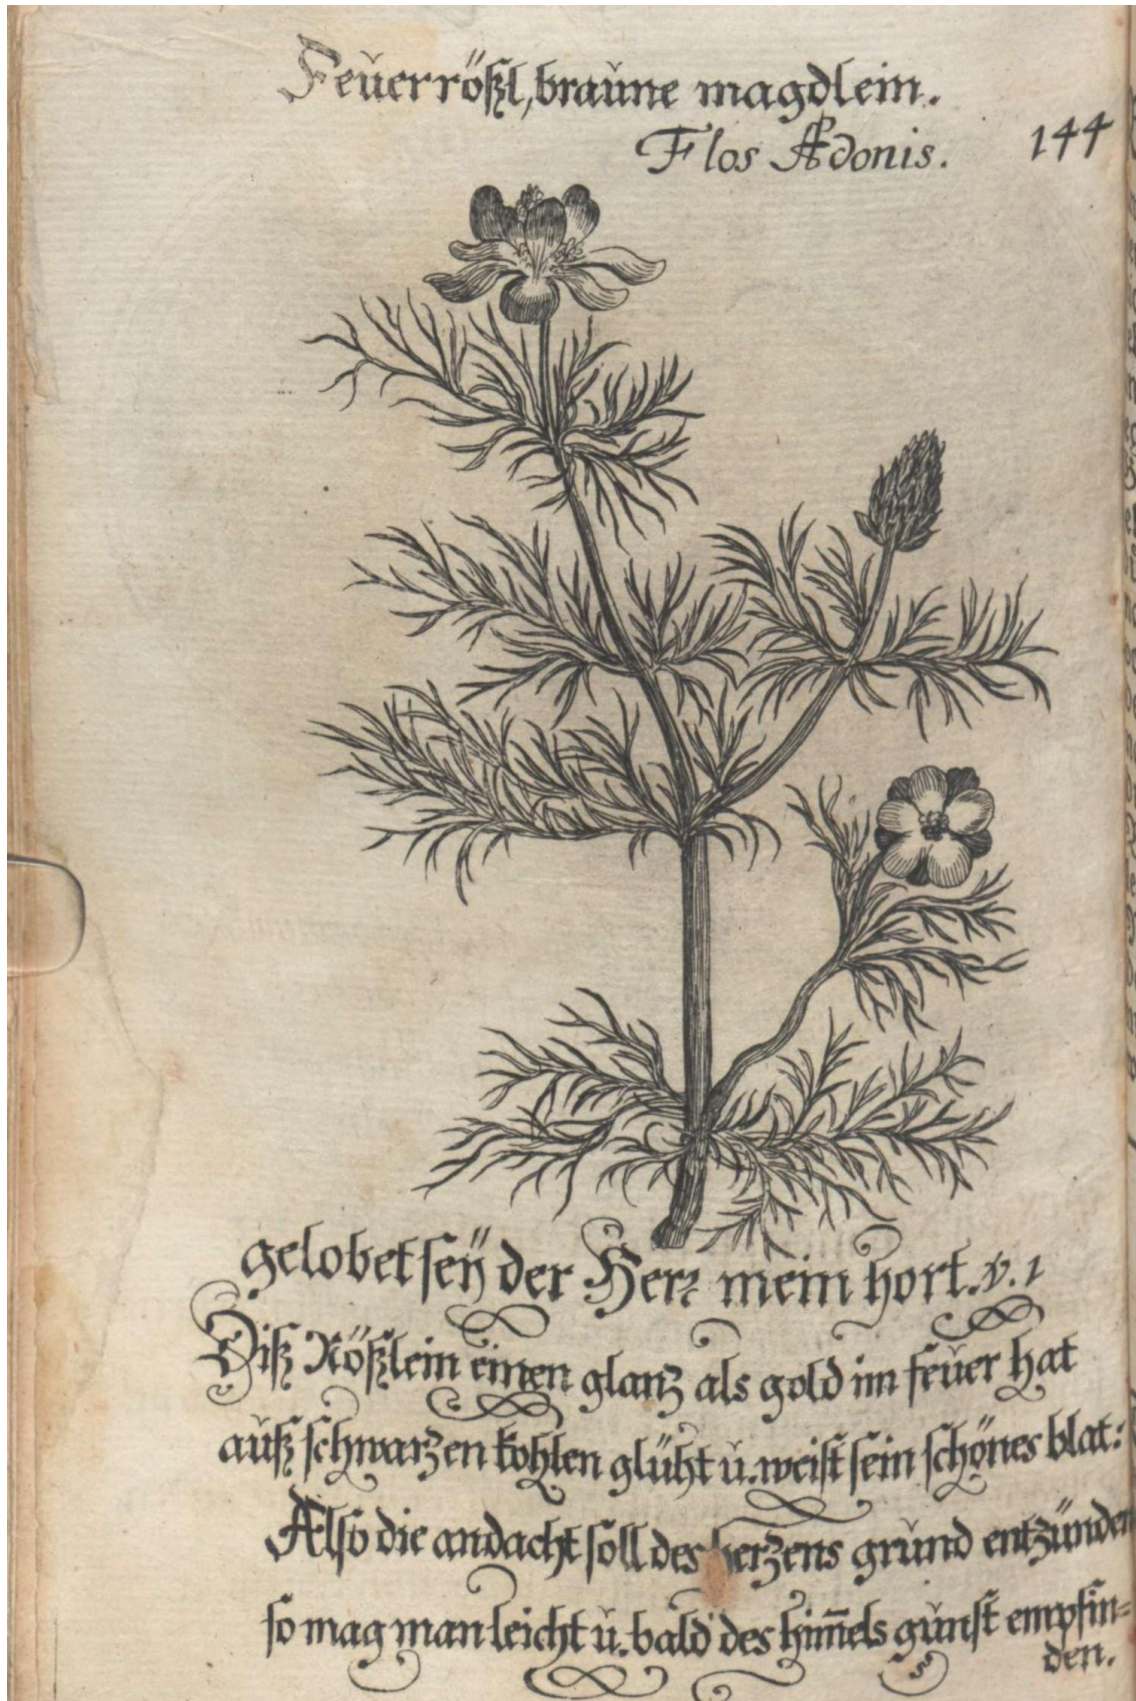 Feuerrößl, braune magdlein.
Flos Adonis.
144
gelobet seÿ der Herz mein hort. v. 1
Diß Rößlein einen glanz als gold im feuer hat
auß schwarzen kohlen glüht u. weist sein schönes blat:
Also die andacht soll des herzens grund entzünden
so mag man leicht u. bald des him̄els gunst empfin=
den.